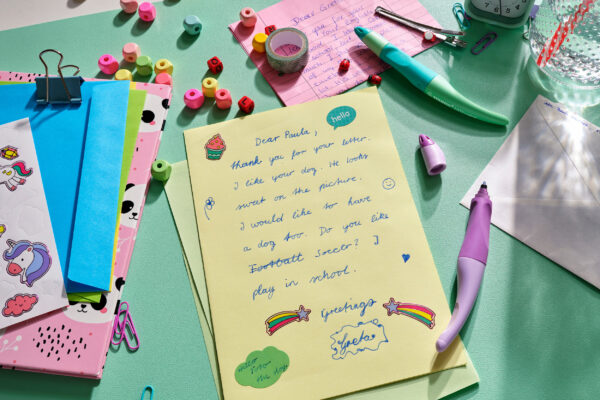 Dear Gret
you for your
hello
Dear Paula,
thank you for your letter.
I like your dog. He looks
sweat on the picture.
I would like to have
a dog too. Do you like
Football Soccer? I
play in school.
Greetings
Greta
Hello
the dog